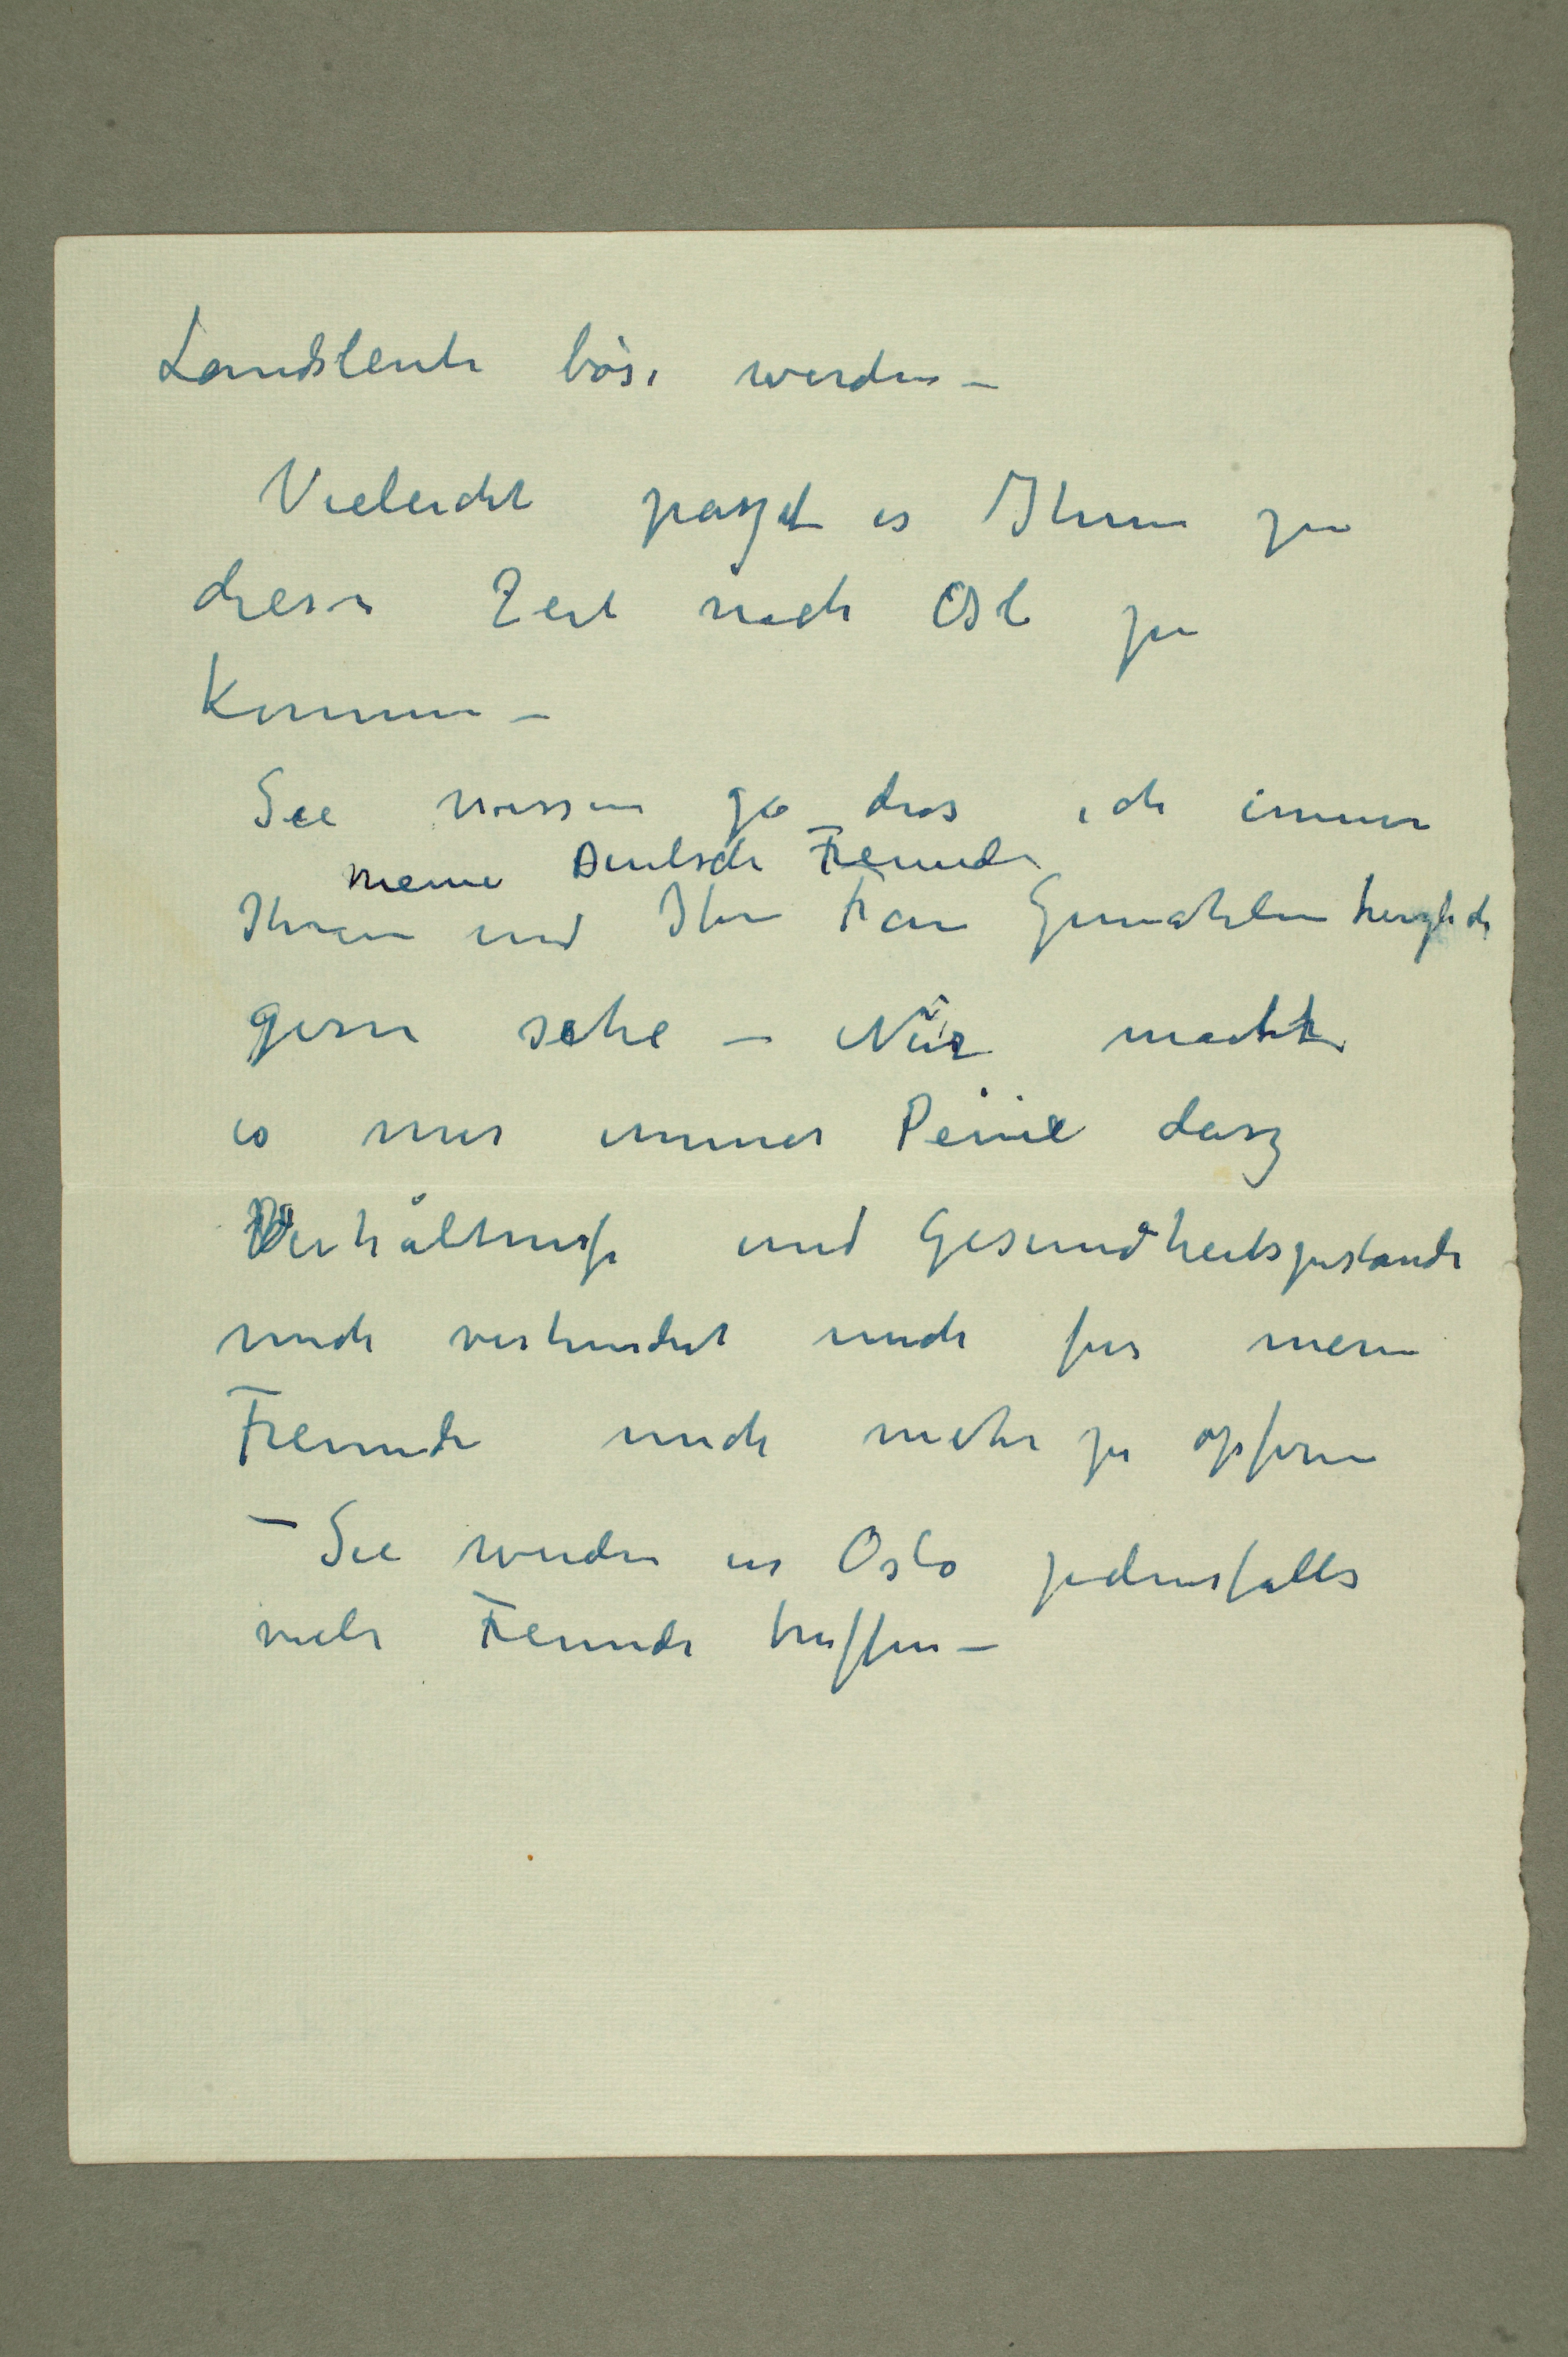 Landsleute böse werden –
Vieleicht paszt es Ihnen zu
dieser Zeit nach Oslo zu
kommen –
Sie wissen ja das ich immer
meine Deutsche Freunde
Ihnen und Ihre Frau Gemahlin herzlich
gern sehe – Nur macht
es mir immer Peine dasz
Verhältnisse und Gesundheitszustande
mich verhindert mich für meine
Freunde mich mehr zu opfern
– Sie werden in Oslo jedensfalls
viele Freunde treffen –